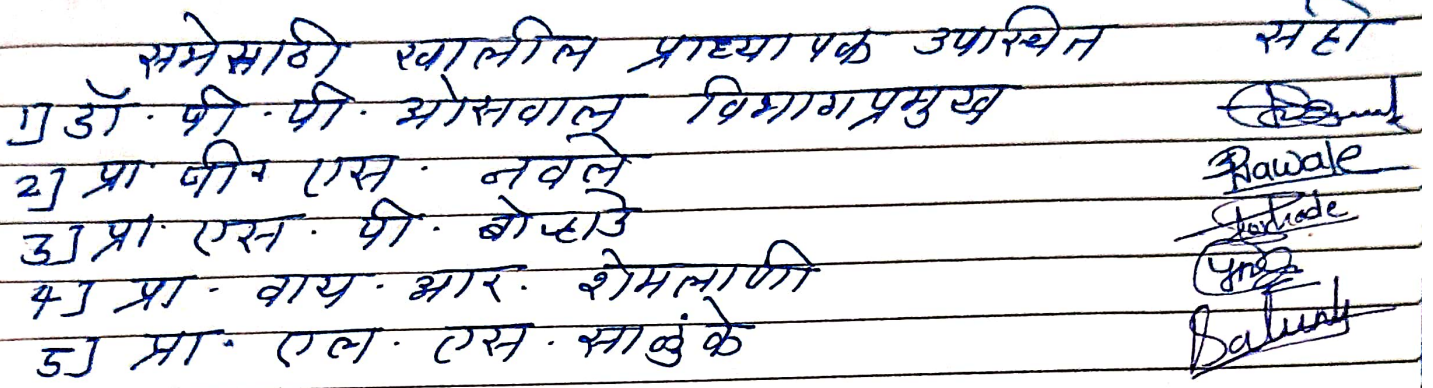 सभेसाठी खालील प्राध्यापक उपस्थित सही
1] डॉ. पी. पी. ओसवाल विभागप्रमुख
2] प्रा. जी. एस. नवले Nawale
3] प्रा. एस. पी. बोऱ्हाडे
4] प्रा. वाय. आर. शेमलाणी
5] प्रा. एल. एस. साळुंके